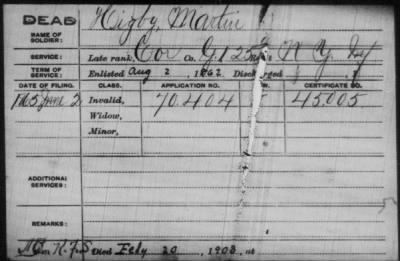 DEAD
NAME OF SOLDIER: Higby, Martin
SERVICE: Late rank, Cor Co. G, 125 N Y
TERM OF SERVICE: Enlisted Aug 2, 1862 Discharged
DATE OF FILING. CLASS. APPLICATION NO. CERTIFICATE NO.
June 2 Invalid, 70.404 45.005
Widow,
Minor,
ADDITIONAL SERVICES:
REMARKS:
Died Feby 20, 1903, at